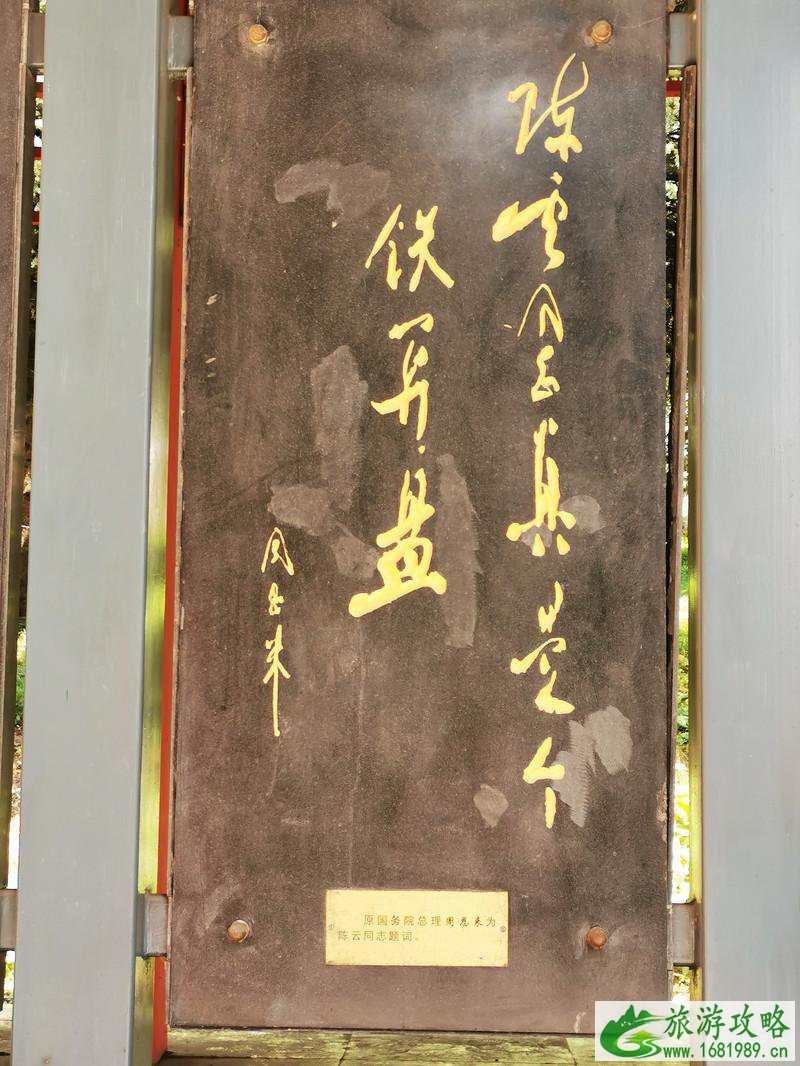 陈云同志真是个
铁算盘
周恩来
原国务院总理周恩来为
陈云同志题词。
旅游攻略
www.1681989.cn